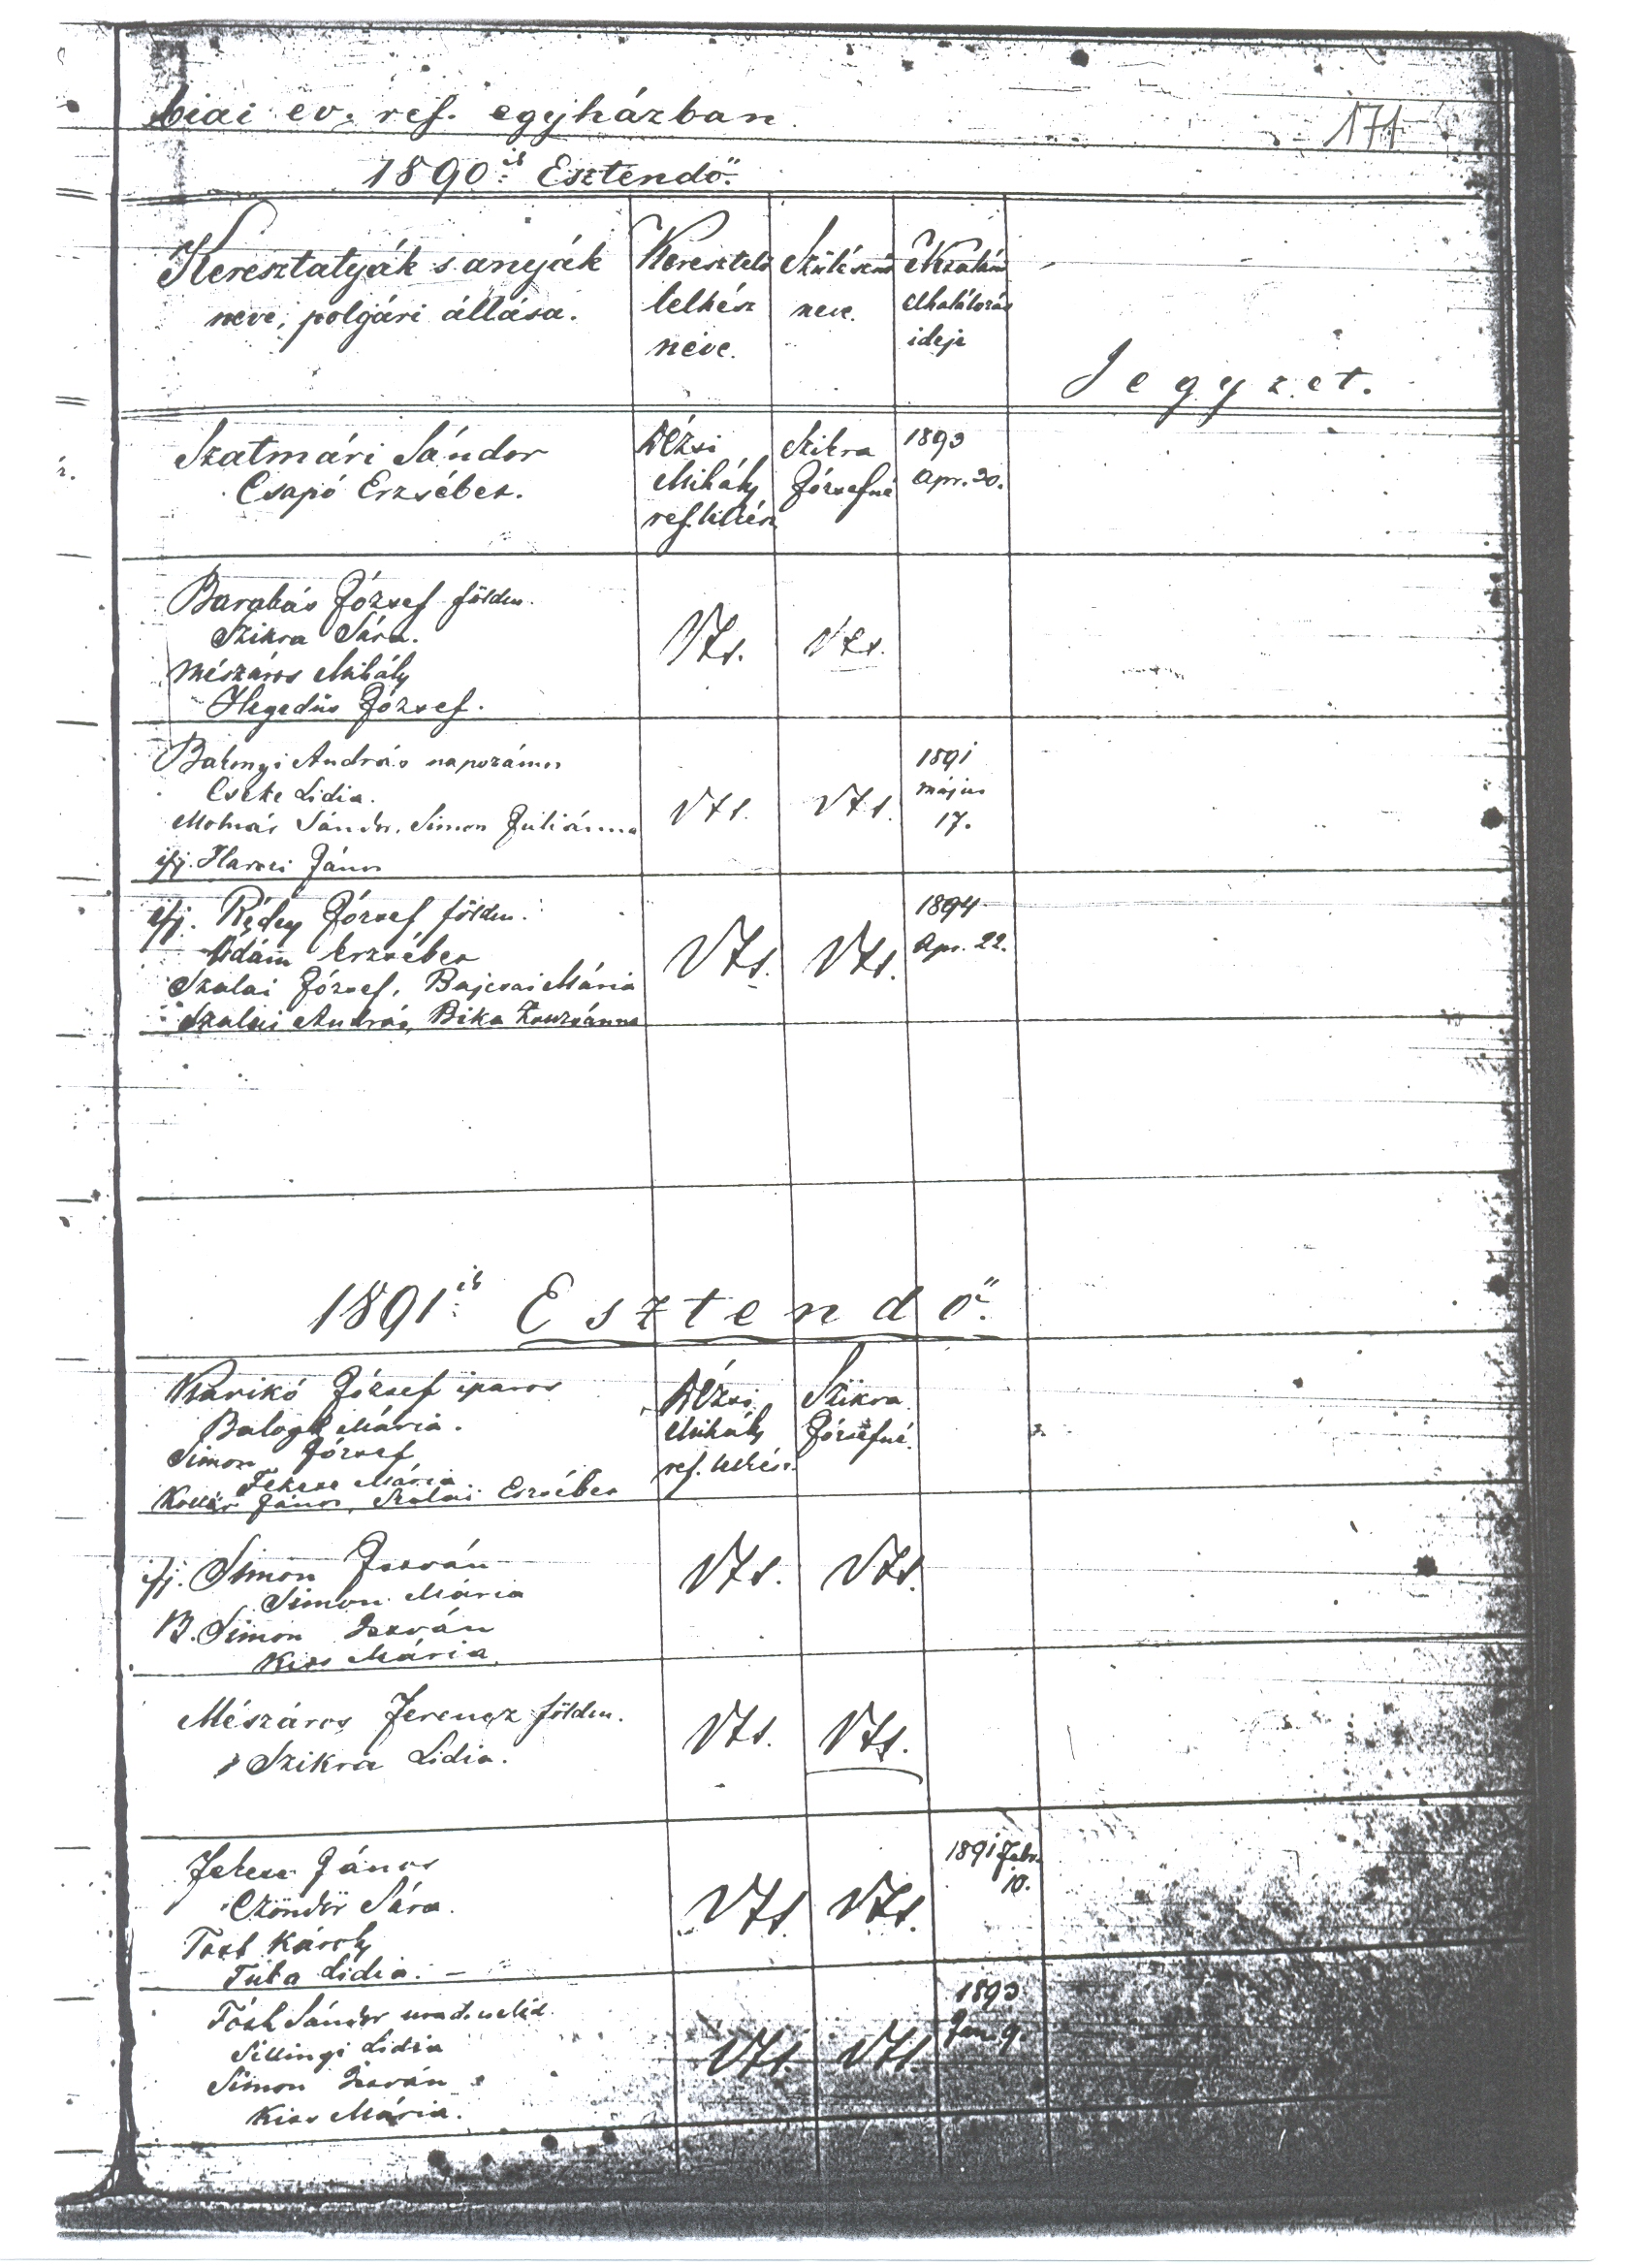 biai ev. ref. egyházban
171
1890ik Esztendő.
Keresztatyák s anyák
neve, polgári állása.
Keresztelő
lelkész
neve.
Szülésznő
neve.
elhalálozás
ideje
Jegyzet.
Szatmári Sándor
Csapó Erzsébet.
Vézsi
Mihály
ref. lelkész
Szikra
Józsefné
1893
Apr. 20.
Barabás József földm.
Szikra Sára.
Mészáros Mihály
Hegedüs József.
Uzs.
Uzs.
Bakonyi András napszámos
Cseke Lidia.
Molnár Sándor, Simon Juliánna
ifj. János
Uzs.
Uzs.
1891
május
17.
ifj. Rédey József földm.
Ádám Erzsébet
Szalai József, Bajcsai Mária
Szalai András, Bika Zsuzsánna
Uzs.
Uzs.
1894
Apr. 22.
1891ik Esztendő.
Karikó József iparos
Balogh Mária.
Simon József
Fekete Mária
János, Szalai Erzsébet
Vézsi
Mihály
ref. lelkész.
Szikra
Józsefné.
ifj. Simon István
Simon Mária
B. Simon István
Kiss Mária.
Uzs.
Uzs.
Mészáros Ferencz földm.
Szikra Lidia.
Uzs.
Uzs.
Fekete János
Czöndör Sára.
Tóth Károly
Tuba Lidia. –
Uzs.
Uzs.
1891 Febr.
10.
Tóth Sándor
Sillingi Lidia
Simon István
Kiss Mária.
Uzs.
Uzs.
1893
Jan. 9.